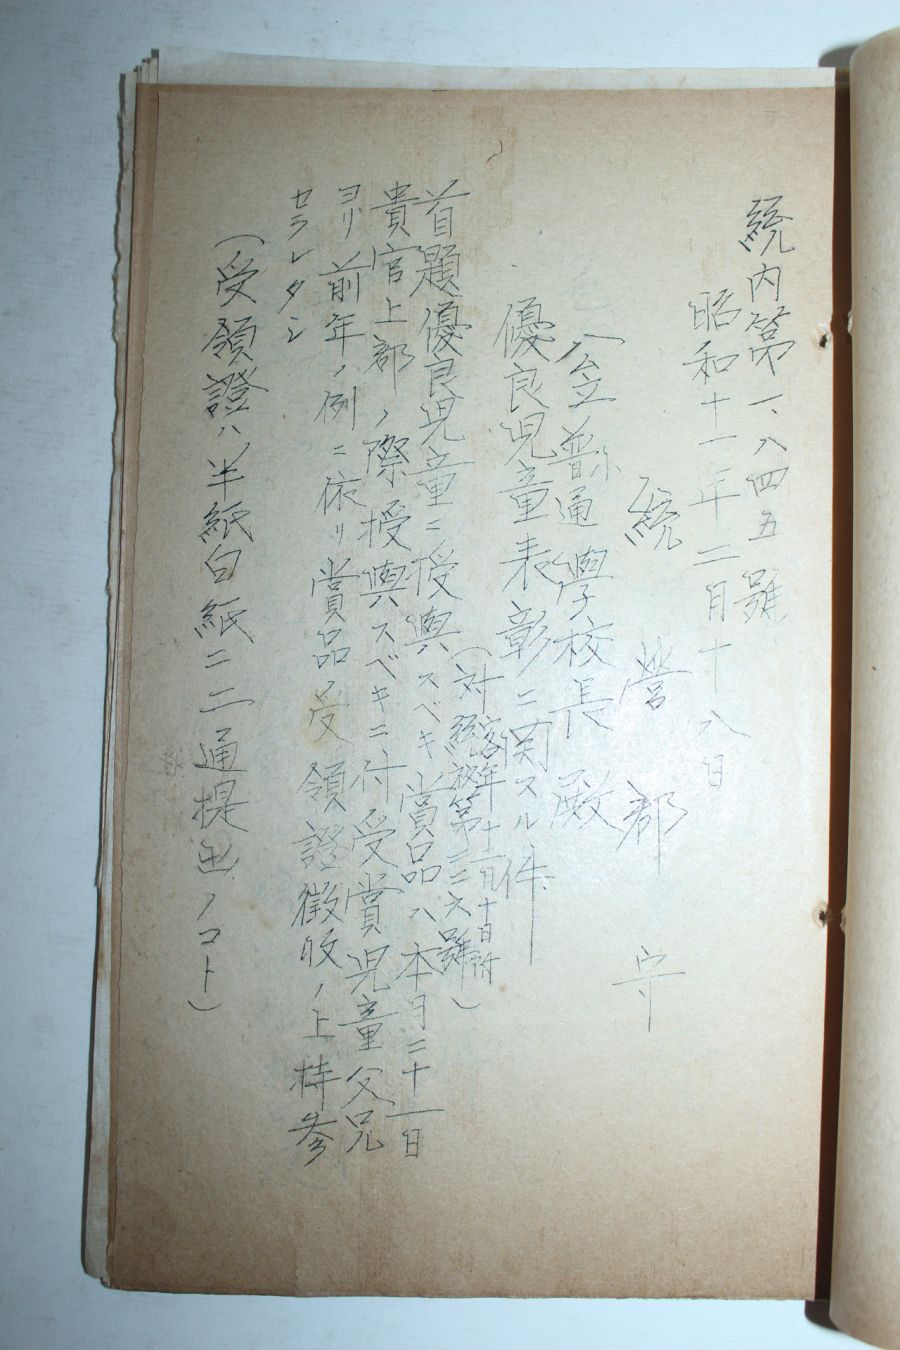 統内第一、八四五號
昭和十一年二月十八日
統營郡守
公立普通學校長殿
優良児童表彰ニ関スル件
(対客年十二月十日附
統秘第三六號)
首題優良児童ニ授與スベキ賞品ハ本月二十一日
貴官上郡ノ際授與スベキニ付受賞児童父兄
ヨリ前年ノ例ニ依リ賞品ノ受領證徴収ノ上持参
セラレタシ
(受領證ハ半紙白紙ニ二通提出ノコト)